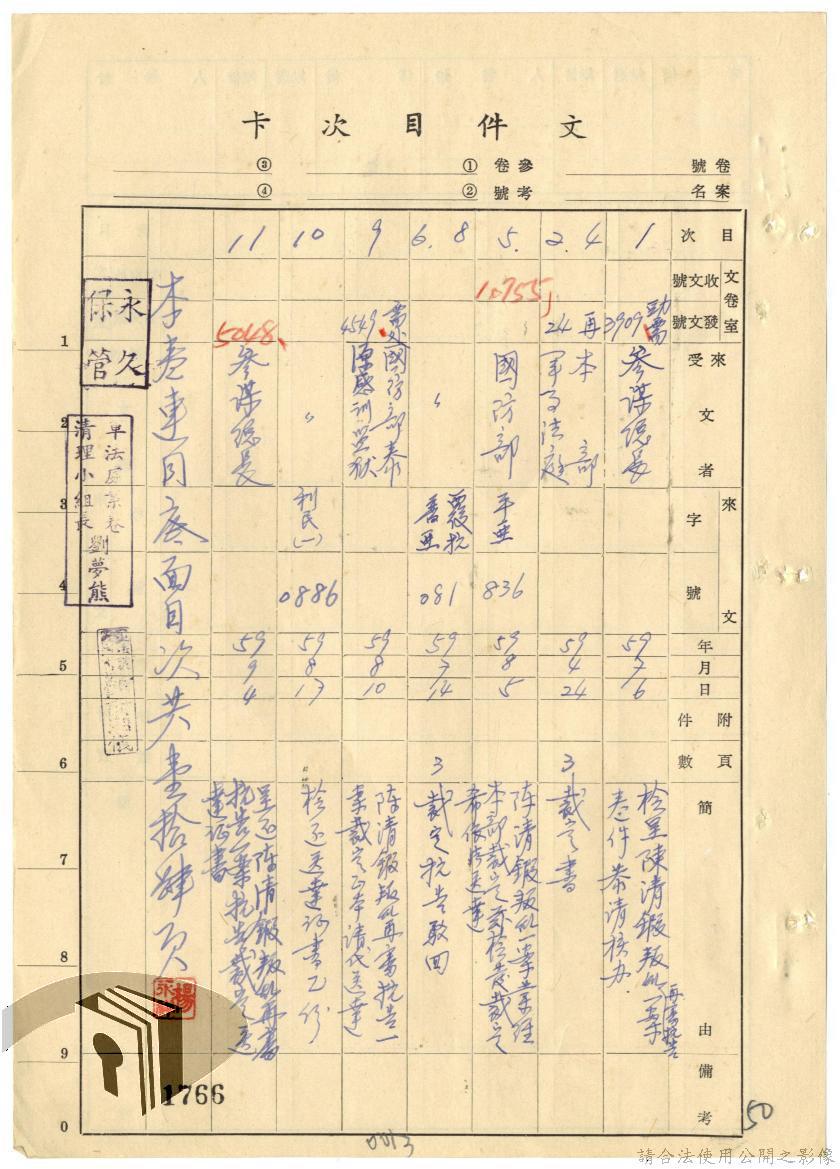 文件目次卡
卷號
案名
參考卷號
①
②
③
④
目次
文卷室
收文號
發文號
來受文者
來文
字號
年月日
附件
頁數
簡由
備考
1
3909
參謀總長
59
7
6
檢呈陳清鍛叛乱一案
再審抗告
卷件恭請核办
2. 4
再
24
本部
軍事法庭
59
4
24
3
裁定書
5.
國防部
836
59
8
5
陈清鍛叛乱一案業經
本部裁定茲檢發裁定
希依法送達
6. 8
〃
覆抗
081
59
7
14
3
裁定抗告駁回
9
4549
國防部泰
源感訓監狱
59
8
10
陈清鍛叛乱再審抗告一
案裁定正本請代送達
10
〃
利民(一)
0886
59
8
17
檢还送達证書乙份
11
5048
參謀總長
59
9
4
呈还陈清鍛叛乱再審
抗告一案抗告裁定送
達证書
本卷連同底面目次共壹拾肆页
永久保管
清理小組長
劉夢熊
1
2
3
4
5
6
7
8
9
0
1766
50
0013
請合法使用公開之影像